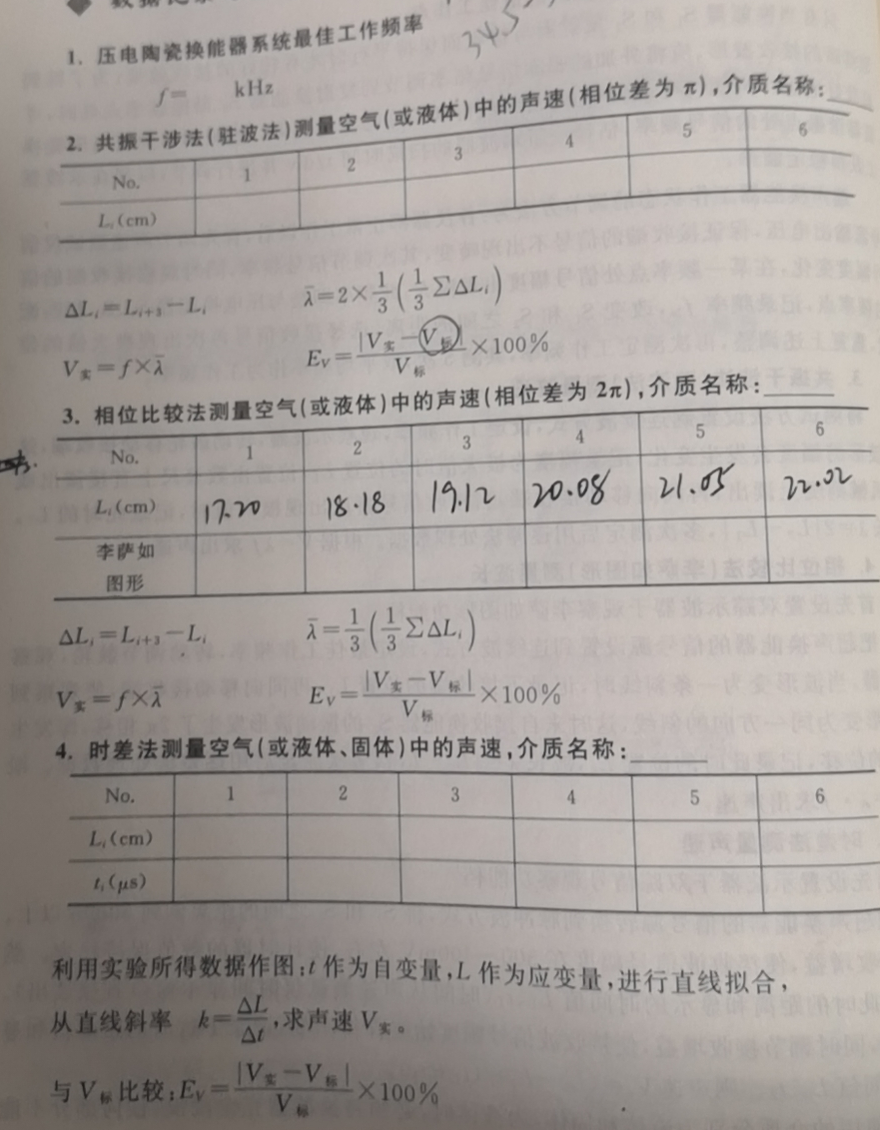 1. 压电陶瓷换能器系统最佳工作频率
f= kHz
2. 共振干涉法(驻波法)测量空气(或液体)中的声速(相位差为 π),介质名称:
No. 1 2 3 4 5 6
Lᵢ(cm)
ΔLᵢ=Lᵢ₊₃-Lᵢ λ̄=2×1/3(1/3ΣΔLᵢ)
V实=f×λ̄ Eᵥ=|V实-V标|/V标×100%
3. 相位比较法测量空气(或液体)中的声速(相位差为 2π),介质名称:
No. 1 2 3 4 5 6
Lᵢ(cm) 17.20 18.18 19.12 20.08 21.05 22.02
李萨如
图形
ΔLᵢ=Lᵢ₊₃-Lᵢ λ̄=1/3(1/3ΣΔLᵢ)
V实=f×λ̄ Eᵥ=|V实-V标|/V标×100%
4. 时差法测量空气(或液体、固体)中的声速,介质名称:
No. 1 2 3 4 5 6
Lᵢ(cm)
tᵢ(μs)
利用实验所得数据作图:t 作为自变量,L 作为应变量,进行直线拟合,
从直线斜率 k=ΔL/Δt,求声速 V实。
与 V标 比较:Eᵥ=|V实-V标|/V标×100%